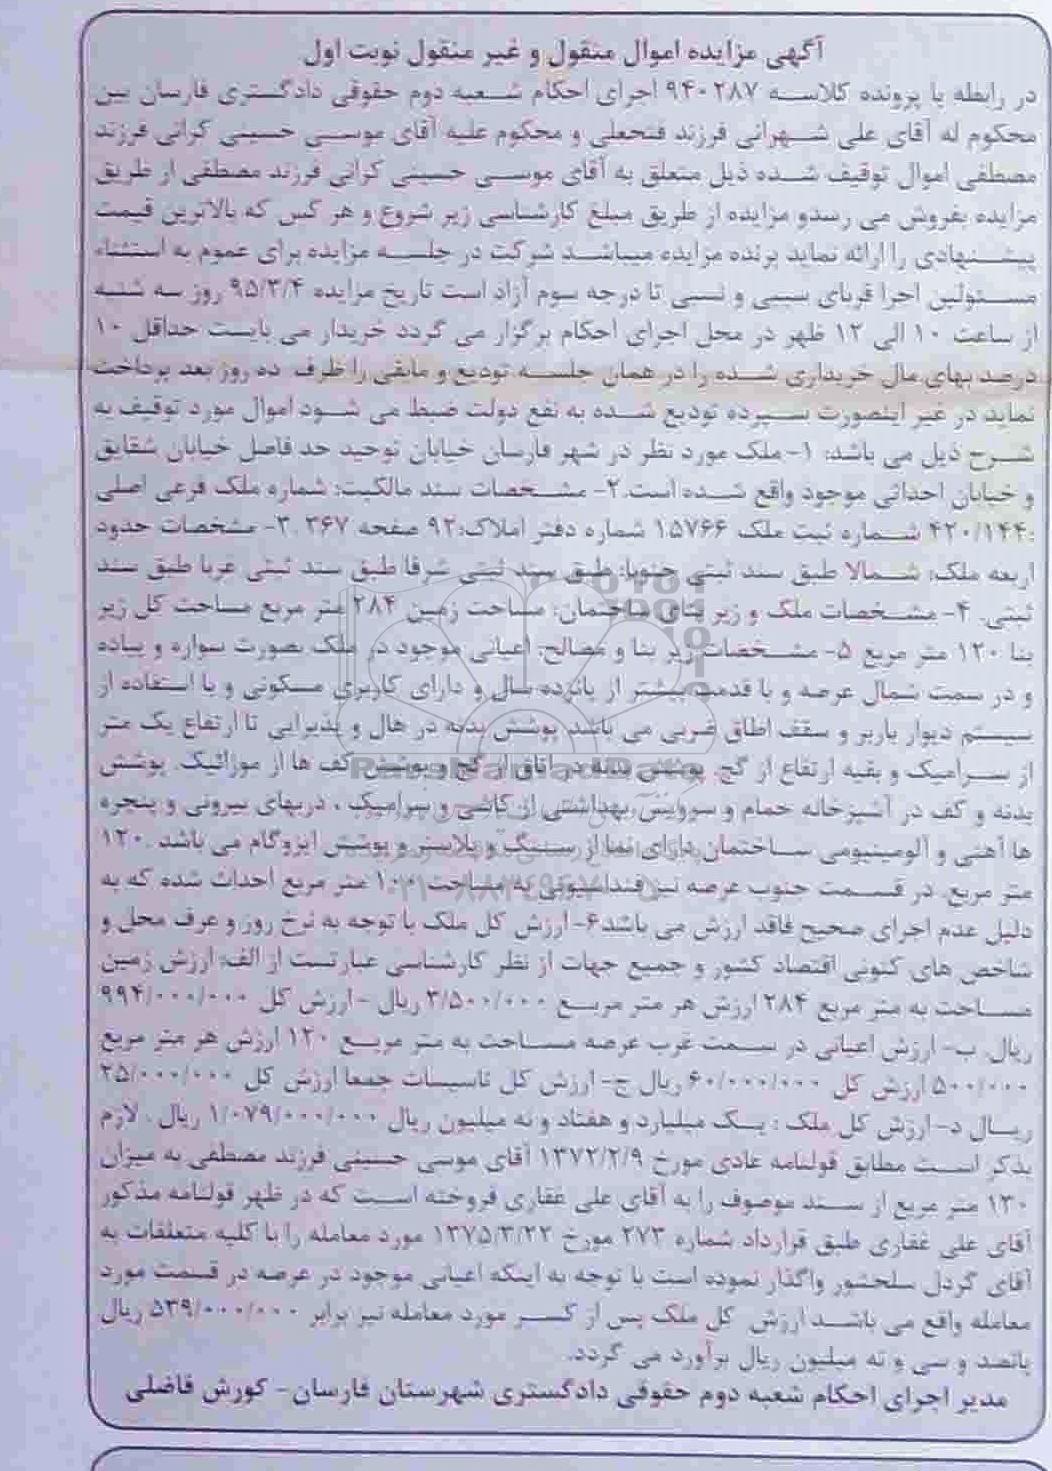 آگهی مزایده اموال منقول و غیر منقول نوبت اول
در رابطه با پرونده کلاسه ۹۴۰۲۸۷ اجرای احکام شعبه دوم حقوقی دادگستری فارسان بین
محکوم له آقای علی شهرانی فرزند فتحعلی و محکوم علیه آقای موسی حسینی کرانی فرزند
مصطفی اموال توقیف شده ذیل متعلق به آقای موسی حسینی کرانی فرزند مصطفی از طریق
مزایده بفروش می رسدو مزایده از طریق مبلغ کارشناسی زیر شروع و هر کس که بالاترین قیمت
پیشنهادی را ارائه نماید برنده مزایده میباشد شرکت در جلسه مزایده برای عموم به استثناء
مسئولین اجرا قربای سببی و نسبی تا درجه سوم آزاد است تاریخ مزایده ۹۵/۳/۴ روز سه شنبه
از ساعت ۱۰ الی ۱۲ ظهر در محل اجرای احکام برگزار می گردد خریدار می بایست حداقل ۱۰
درصد بهای مال خریداری شده را در همان جلسه تودیع و مابقی را ظرف ده روز بعد پرداخت
نماید در غیر اینصورت سپرده تودیع شده به نفع دولت ضبط می شود اموال مورد توقیف به
شرح ذیل می باشد: ۱- ملک مورد نظر در شهر فارسان خیابان توحید حد فاصل خیابان شقایق
و خیابان احداثی موجود واقع شده است.۲- مشخصات سند مالکیت: شماره ملک فرعی اصلی
:۴۲۰/۱۴۴ شماره ثبت ملک ۱۵۷۶۶ شماره دفتر املاک:۹۲ صفحه ۳۶۷ .۳- مشخصات حدود
اربعه ملک: شمالا طبق سند ثبتی جنوبا: طبق سند ثبتی شرقا طبق سند ثبتی غربا طبق سند
ثبتی. ۴- مشخصات ملک و زیر بنای ساختمان: مساحت زمین ۲۸۴ متر مربع مساحت کل زیر
بنا ۱۲۰ متر مربع ۵- مشخصات زیر بنا و مصالح: اعیانی موجود در ملک بصورت سواره و پیاده
و در سمت شمال عرصه و با قدمت بیشتر از پانزده سال و دارای کاربری مسکونی و با استفاده از
سیستم دیوار باربر و سقف اطاق ضربی می باشد پوشش بدنه در هال و پذیرایی تا ارتفاع یک متر
از سرامیک و بقیه ارتفاع از گچ. پوشش بدنه در اتاق از گچ و پوشش کف ها از موزائیک. پوشش
بدنه و کف در آشپزخانه حمام و سرویس بهداشتی از کاشی و سرامیک ، دربهای بیرونی و پنجره
ها آهنی و آلومینیومی ساختمان دارای نما از سنگ و پلاستر و پوشش ایزوگام می باشد .۱۲۰
متر مربع. در قسمت جنوب عرصه نیز فنداسیونی به مساحت ۱۰۰ متر مربع احداث شده که به
دلیل عدم اجرای صحیح فاقد ارزش می باشد۶- ارزش کل ملک با توجه به نرخ روز و عرف محل و
شاخص های کنونی اقتصاد کشور و جمیع جهات از نظر کارشناسی عبارتست از الف: ارزش زمین
مساحت به متر مربع ۲۸۴ ارزش هر متر مربع ۳/۵۰۰/۰۰۰ ریال - ارزش کل ۹۹۴/۰۰۰/۰۰۰
ریال. ب- ارزش اعیانی در سمت غرب عرصه مساحت به متر مربع ۱۲۰ ارزش هر متر مربع
۵۰۰/۰۰۰ ارزش کل ۶۰/۰۰۰/۰۰۰ ریال ج- ارزش کل تاسیسات جمعا ارزش کل ۲۵/۰۰۰/۰۰۰
ریال د- ارزش کل ملک : یک میلیارد و هفتاد و نه میلیون ریال ۱/۰۷۹/۰۰۰/۰۰۰ ریال . لازم
بذکر است مطابق قولنامه عادی مورخ ۱۳۷۲/۲/۹ آقای موسی حسینی فرزند مصطفی به میزان
۱۳۰ متر مربع از سند موصوف را به آقای علی غفاری فروخته است که در ظهر قولنامه مذکور
آقای علی غفاری طبق قرارداد شماره ۲۷۳ مورخ ۱۳۷۵/۳/۲۲ مورد معامله را با کلیه متعلقات به
آقای گردل سلحشور واگذار نموده است با توجه به اینکه اعیانی موجود در عرصه در قسمت مورد
معامله واقع می باشد ارزش کل ملک پس از کسر مورد معامله نیز برابر ۵۳۹/۰۰۰/۰۰۰ ریال
پانصد و سی و نه میلیون ریال برآورد می گردد.
مدیر اجرای احکام شعبه دوم حقوقی دادگستری شهرستان فارسان- کورش فاضلی